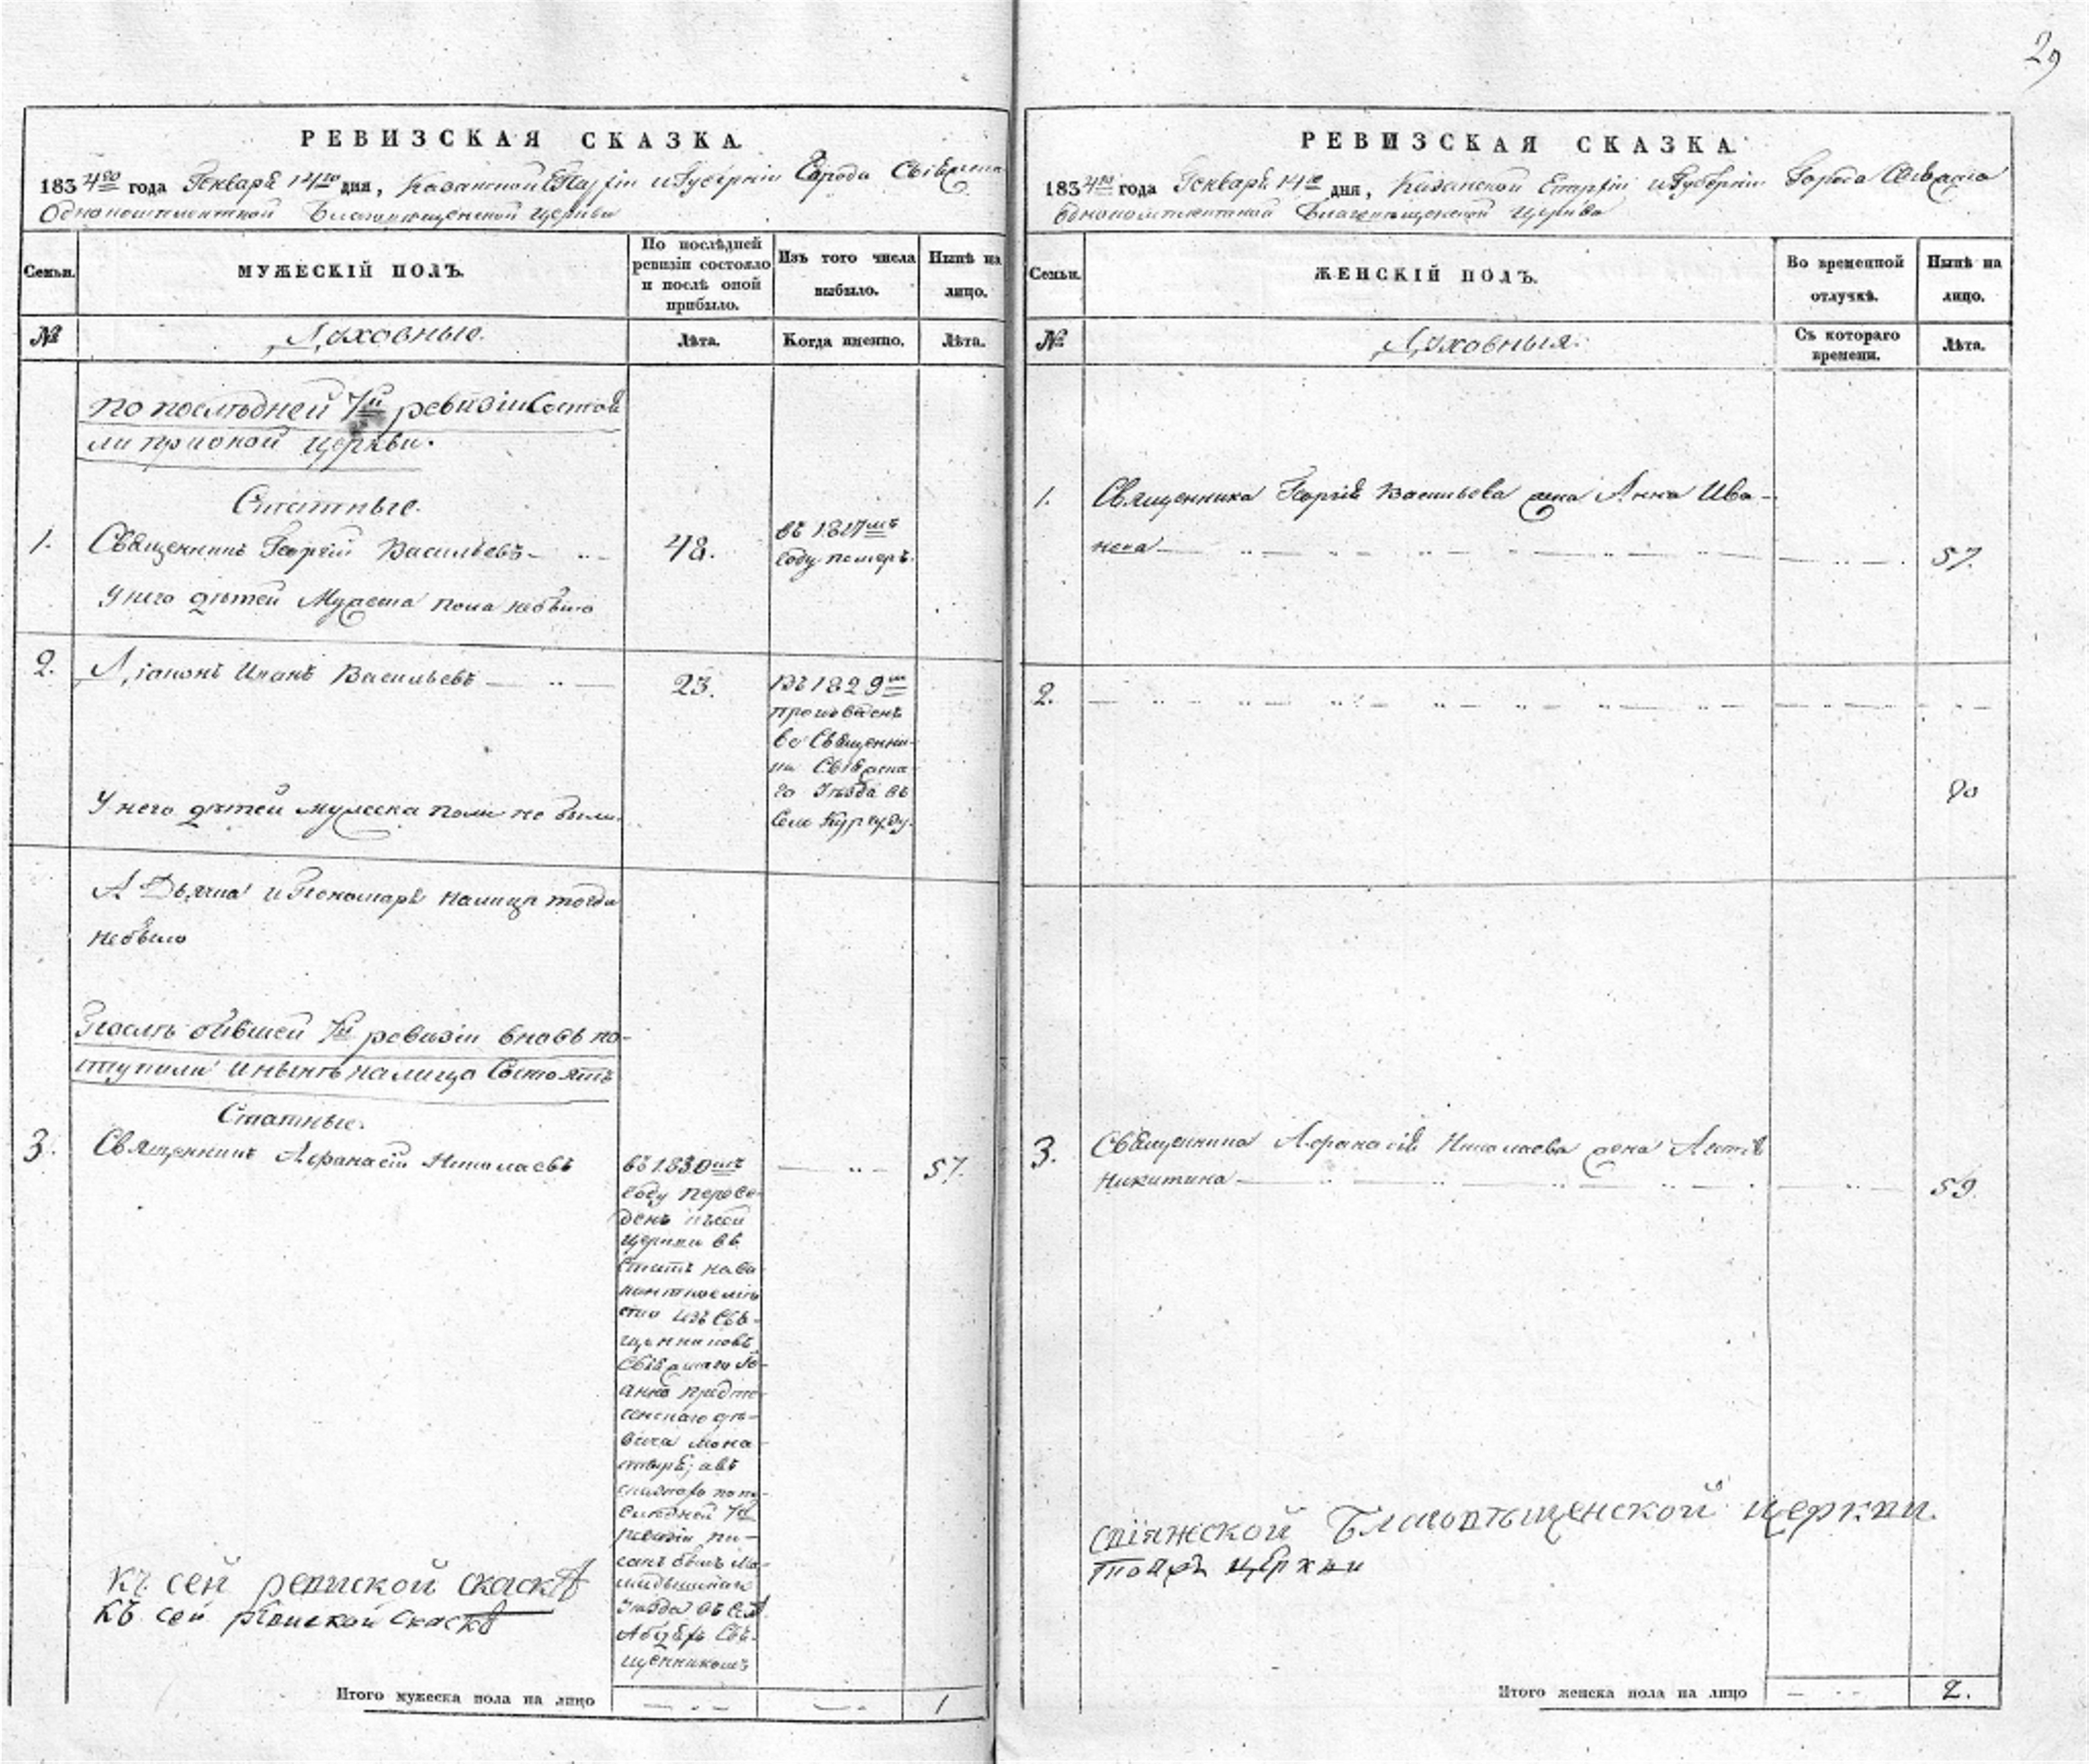 29
РЕВИЗСКАЯ СКАЗКА.
1834го года Генваря 14го дня, Казанской Епархіи и Губерніи Города Свіяжска
Однокомплектной Благовѣщенской церкви
Семьи.
МУЖЕСКІЙ ПОЛЪ.
По послѣдней ревизіи состояло и послѣ оной прибыло.
Изъ того числа выбыло.
Нынѣ на лицо.
№
Духовные.
Лѣта.
Когда именно.
Лѣта.
По послѣдней 7й ревизіи состоя
ли при оной церкви.
Статные.
1.
Священникъ Георгій Васильевъ
48.
въ 1817мъ
году померъ.
У него дѣтей Мужеска пола небыло
2.
Діаконъ Иванъ Васильевъ
23.
Въ 1829м
произведенъ
во Священни-
ки Свіяжска
го Уѣзда въ
Село
У него дѣтей мужеска пола не было.
А Дьячка и Пономаря налицо тогда
небыло
Послѣ бывшей 7й ревизіи вновь по-
ступили и нынѣ налицо Состоятъ
Статные.
3.
Священникъ Афанасій Николаевъ
57.
въ 1830мъ
году переве-
денъ къ сей
церкви въ
Статъ на ва-
кантное мѣ
сто изъ Свя-
щенниковъ
Свіяжскаго Іо-
анно предте-
ченскаго дѣ-
вича мона
стыря; а въ
по по-
слѣдней 7й
ревизіи пи-
санъ былъ Ма-
мадышскаго
Уѣзда въ селѣ
Абдяхъ Свя-
щенникомъ
Къ сей ревиской скаскѣ
Къ сей ревиской скаскѣ
Итого мужеска пола на лицо
1
РЕВИЗСКАЯ СКАЗКА.
1834го года Генваря 14го дня, Казанской Епархіи и Губерніи Города Свіяжска
Однокомплектной Благовѣщенской церкви
Семьи.
ЖЕНСКІЙ ПОЛЪ.
Во временной отлучкѣ.
Нынѣ на лицо.
№
Духовныя.
Съ котораго времени.
Лѣта.
1.
Священника Георгія Васильева жена Анна Ива-
нова
57.
2.
3.
Священника Афанасія Николаева жена
Никитина
59.
Свіяжской Благовѣщенской церкви.
церкви
Итого женска пола на лицо
2.